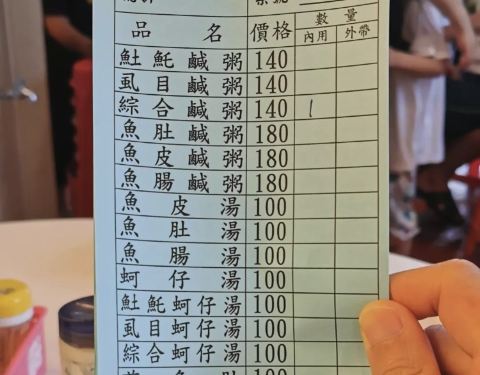 品名 價格 數量
內用 外帶
魠魠鹹粥 140
虱目鹹粥 140
綜合鹹粥 140 1
魚肚鹹粥 180
魚皮鹹粥 180
魚腸鹹粥 180
魚皮湯 100
魚肚湯 100
魚腸湯 100
蚵仔湯 100
魠魠蚵仔湯 100
虱目蚵仔湯 100
綜合蚵仔湯 100
100